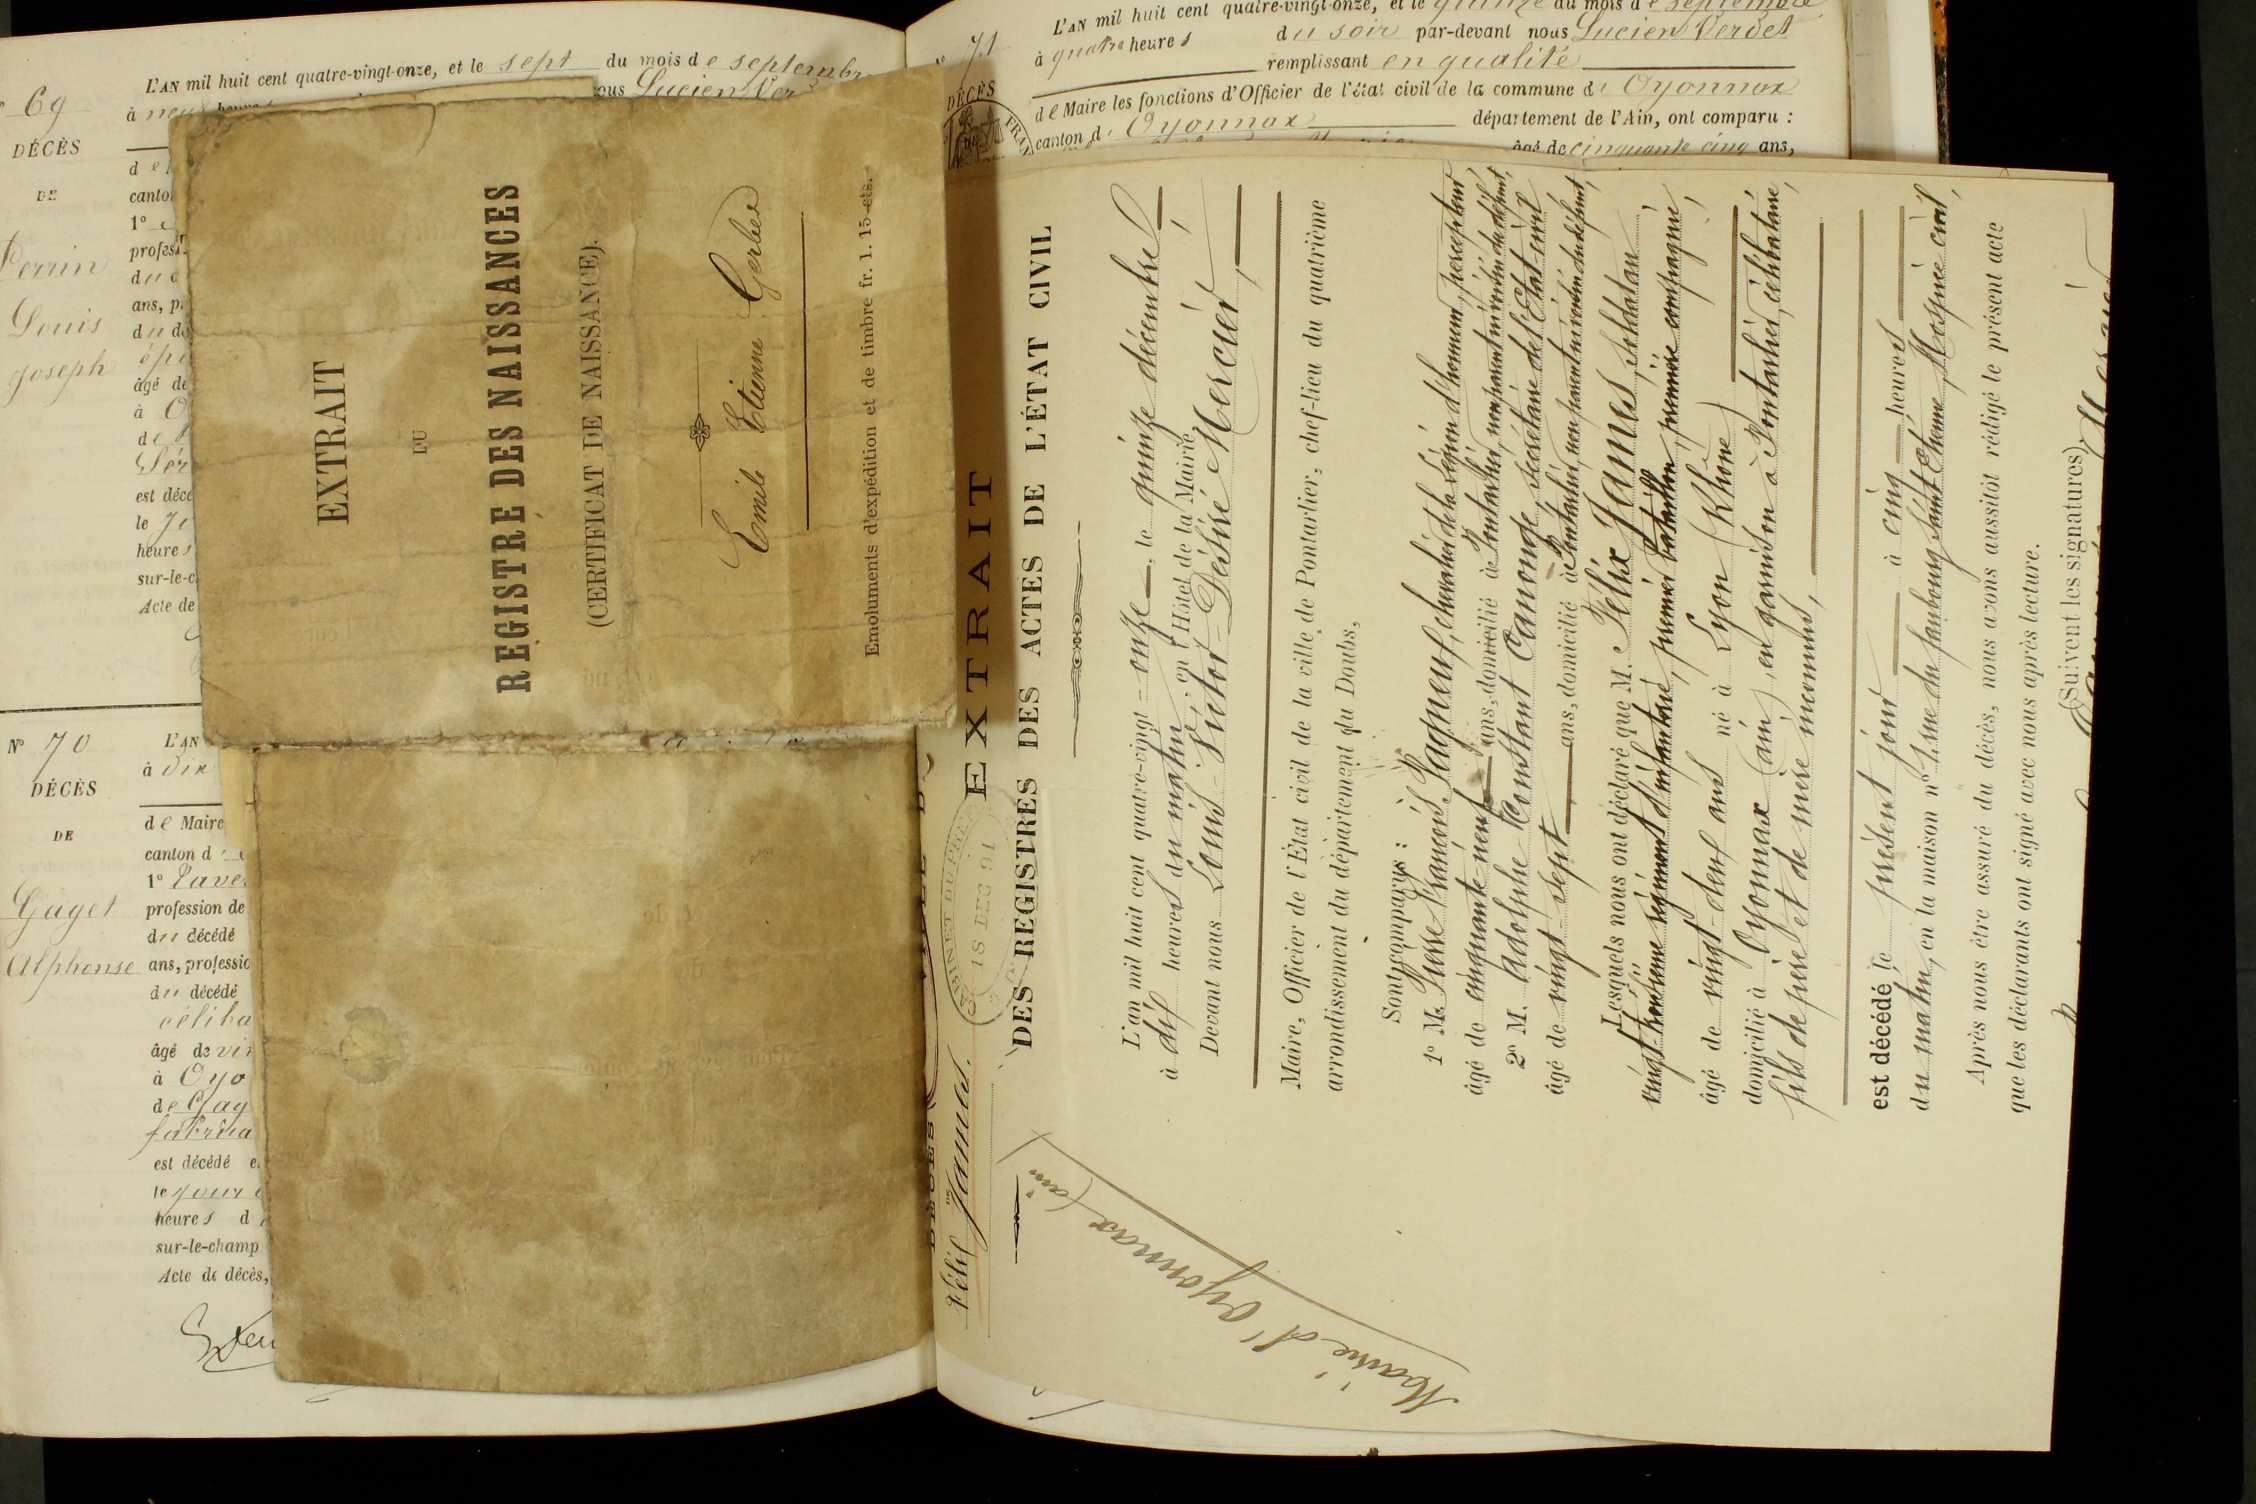 L'AN mil huit cent quatre-vingt-onze, et le sept du mois de septembre
69
DÉCÈS
DE
Perrin
Louis
Joseph
canton
1°
ans, p
âgé de
à O
est décé
heures
sur-le-c
Acte de
N° 70
DÉCÈS
DE
Gaget
Alphonse
L'AN
à dix
de Maire
canton d
1°
profession de
du décédé
ans, professio
du décédé
céliba
âgé de vin
à Oyo
de Gag
est décédé
le jour
heures d
sur-le-champ
Acte de décès,
EXTRAIT
DU
REGISTRE DES NAISSANCES
(CERTIFICAT DE NAISSANCE).
Emile Etienne Gerber
Emoluments d'expédition et de timbre fr. 1. 15 cts.
71
DÉCÈS
L'AN mil huit cent quatre-vingt-onze, et le quinze du mois de septembre
à quatre heures du soir par-devant nous Lucien Verdet
remplissant en qualité
de Maire les fonctions d'Officier de l'état civil de la commune d' Oyonnax
canton d' Oyonnax département de l'Ain, ont comparu :
âgé de cinquante cinq ans,
Félix James.
18 DEC 91
EXTRAIT
DES REGISTRES DES ACTES DE L'ÉTAT CIVIL
L'an mil huit cent quatre-vingt-onze, le quinze décembre
à dix heures du matin, en l'Hôtel de la Mairie
Devant nous Louis-Victor-Désiré Mercier,
Maire, Officier de l'État civil de la ville de Pontarlier, chef-lieu du quatrième
arrondissement du département du Doubs,
Sont comparus :
1° M. Pierre François Pagneux, chevalier de la Légion d'honneur, percepteur
âgé de cinquante neuf ans, domicilié à Pontarlier, non parent ni voisin du défunt,
2° M. Adolphe Constant Canonge, secrétaire de l'État-civil
âgé de vingt-sept ans, domicilié à Pontarlier, non parent ni voisin du défunt,
Lesquels nous ont déclaré que M. Félix James, soldat au
régiment d'infanterie, premier bataillon, première compagnie,
âgé de vingt-deux ans né à Lyon (Rhône)
domicilié à Oyonnax (ain), en garnison à Pontarlier, célibataire,
fils de père et de mère inconnus,
est décédé le présent jour à cinq heures
du matin, en la maison n° rue du faubourg Saint Etienne, Hospice civil,
Après nous être assuré du décès, nous avons aussitôt rédigé le présent acte
que les déclarants ont signé avec nous après lecture.
(Suivent les signatures)
Mairie d'Oyonnax (ain)